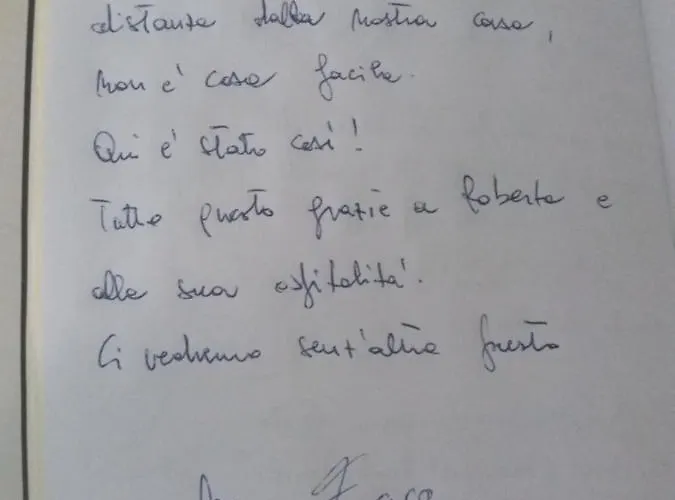 distanza dalla nostra casa,
non è cosa facile.
Qui è stato così!
Tutto questo grazie a Roberta e
alla sua ospitalità.
Ci vedremo senz'altro presto